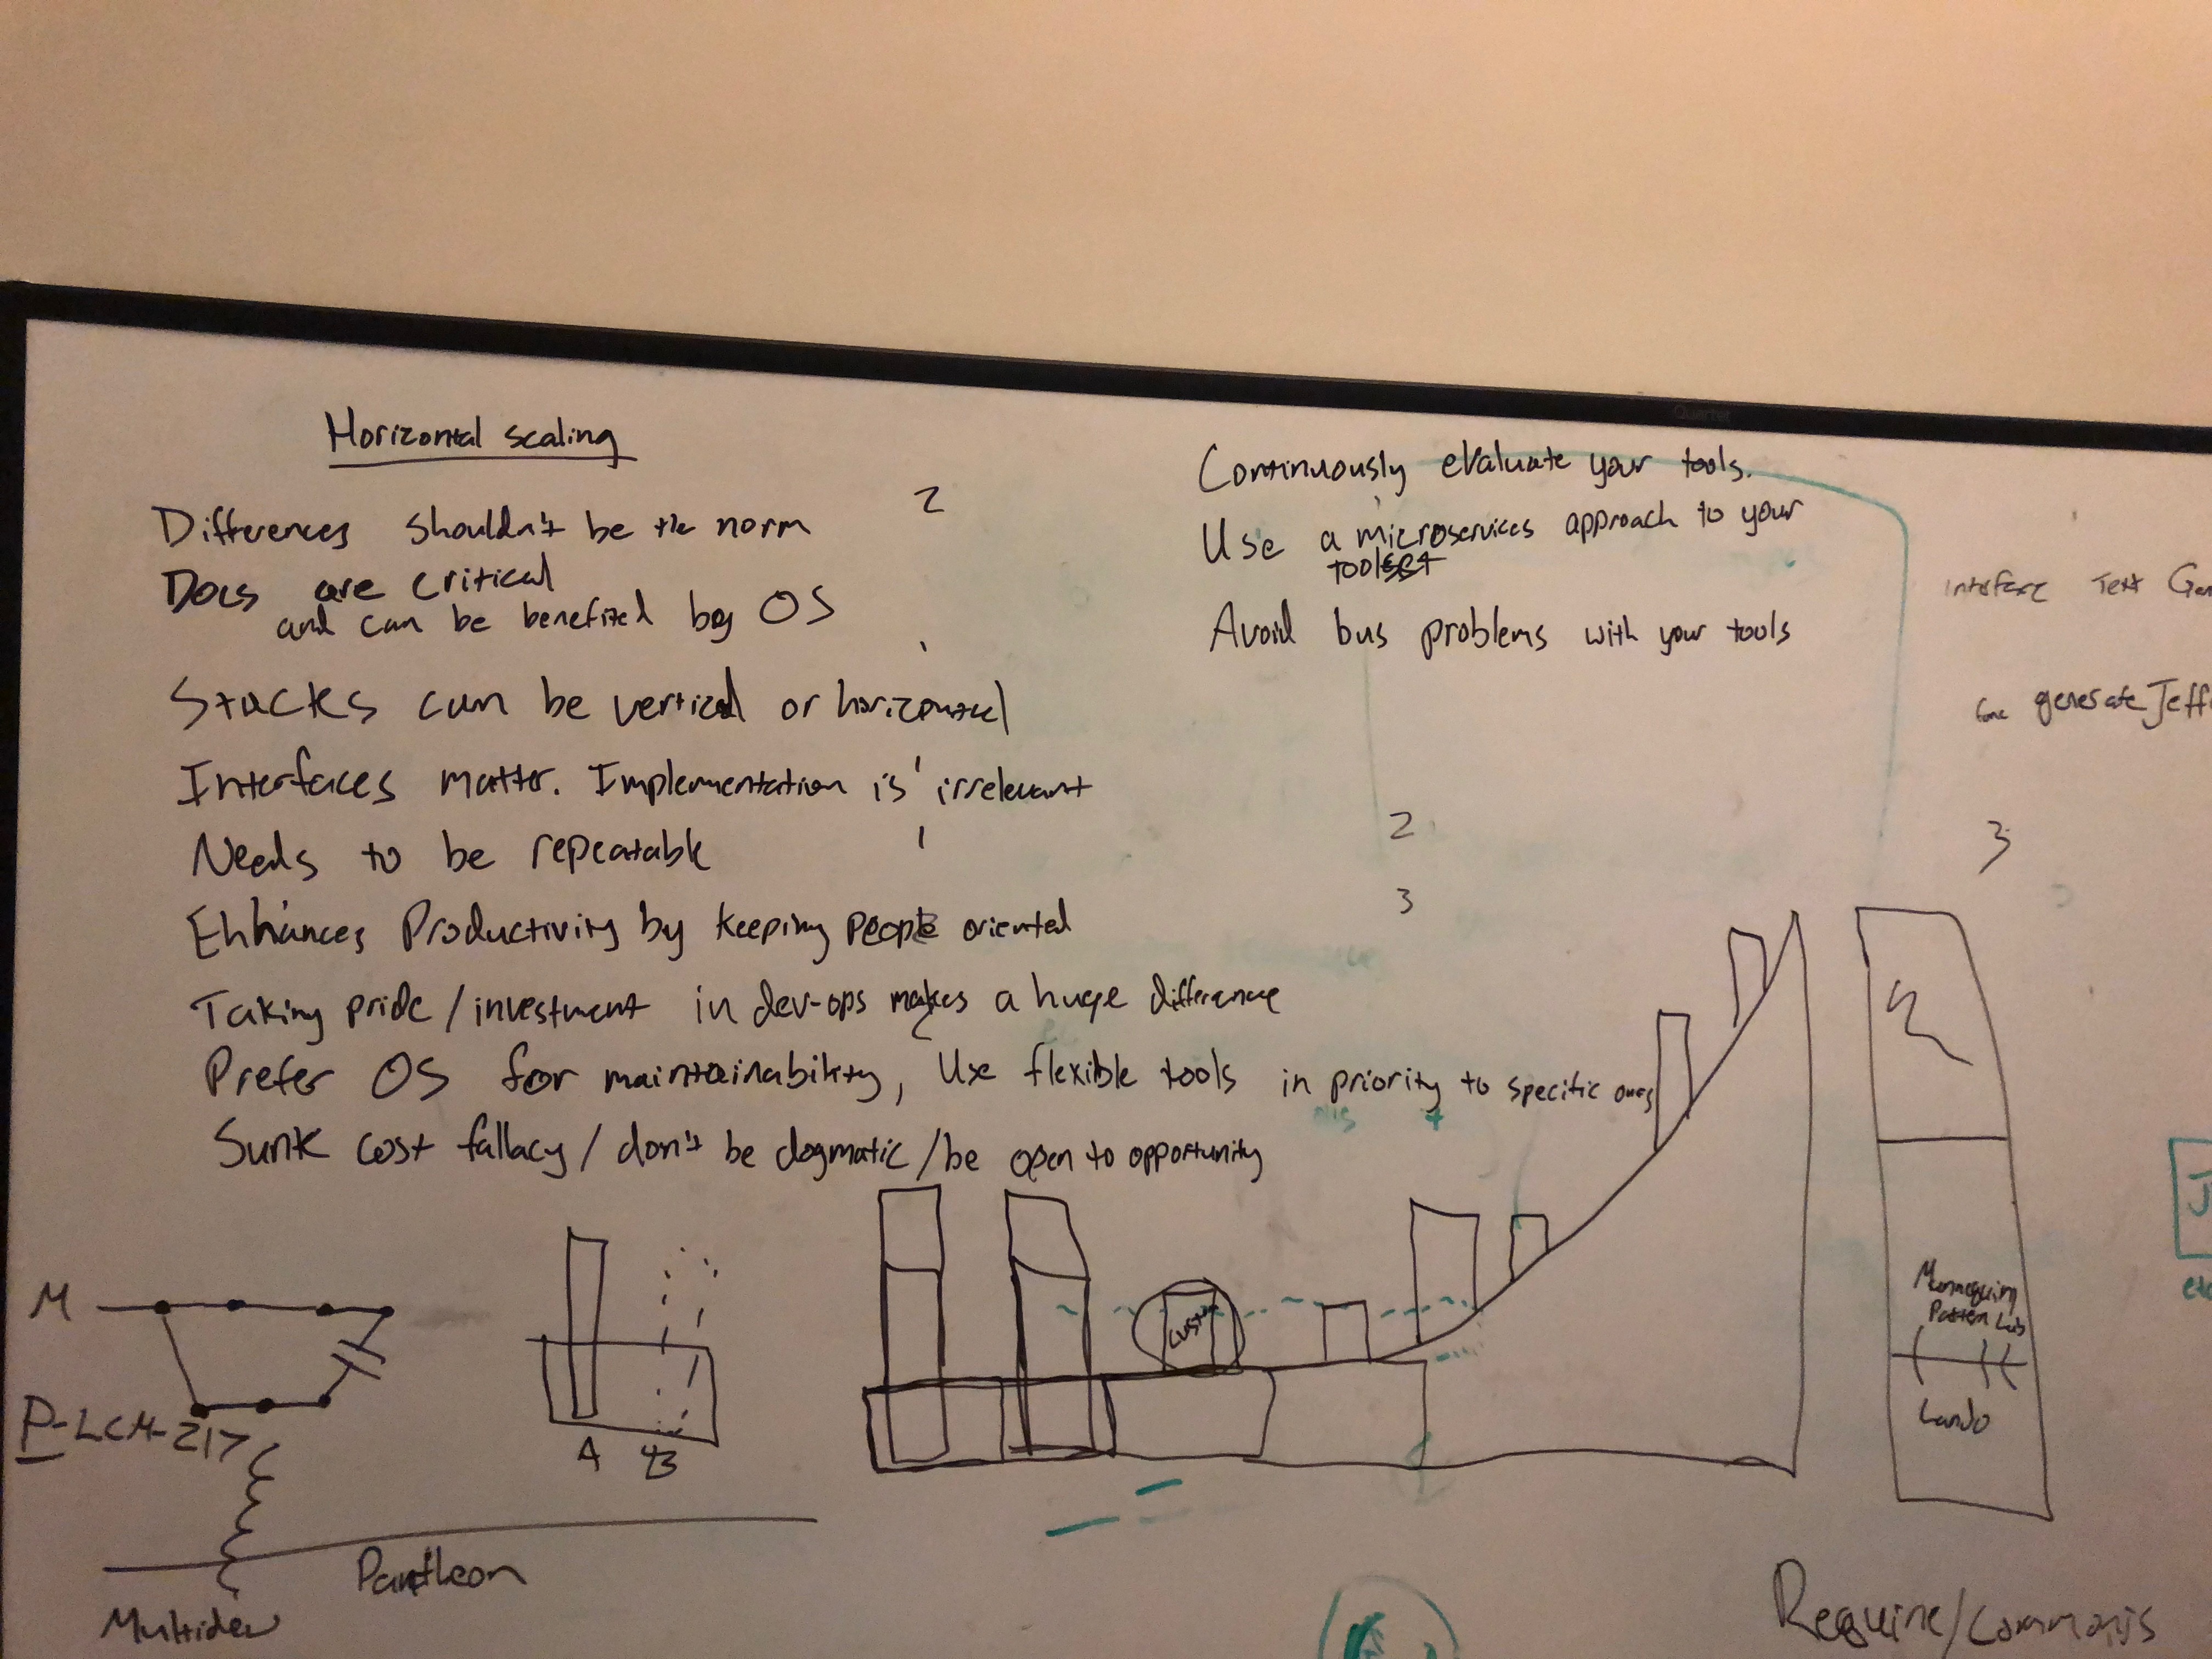 Quartet
Horizontal scaling
2
Differences shouldn't be the norm
Docs are critical
and can be benefited by OS
Stacks can be vertical or horizontal
Interfaces matter. Implementation is irrelevant
Needs to be repeatable
Enhances Productivity by keeping people oriented
Taking pride / investment in dev-ops makes a huge difference
Prefer OS for maintainability, Use flexible tools in priority to specific ones
Sunk cost fallacy / don't be dogmatic / be open to opportunity
Continuously evaluate your tools.
Use a microservices approach to your
toolset
Avoid bus problems with your tools
Interface Text Gen
generate Jeff
2
3
3
M
P-LCM-217
Multidev
Pantheon
A
B
Custom
Mannequin
Pattern Lab
Lando
J
etc
Require/Commonjs